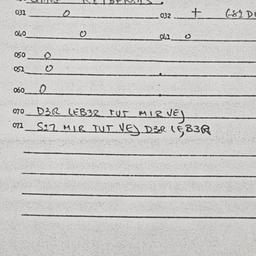 031 0 032 +
040 0 041 0
050 0
051 0
060 0
070 D3R LEB32 TUT MIR VEJ
071 S27 MIR TUT VEJ D3R LEB3R